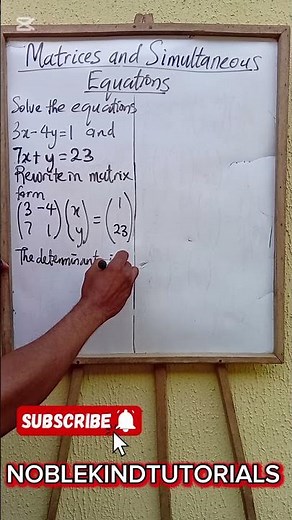 CapCut
Matrices and Simultaneous
Equations
Solve the equations
3x-4y=1 and
7x+y=23
Rewrite in matrix
form
(3 -4) (x) = (1)
(7 1) (y) (23)
The determinant
SUBSCRIBE
NOBLEKINDTUTORIALS